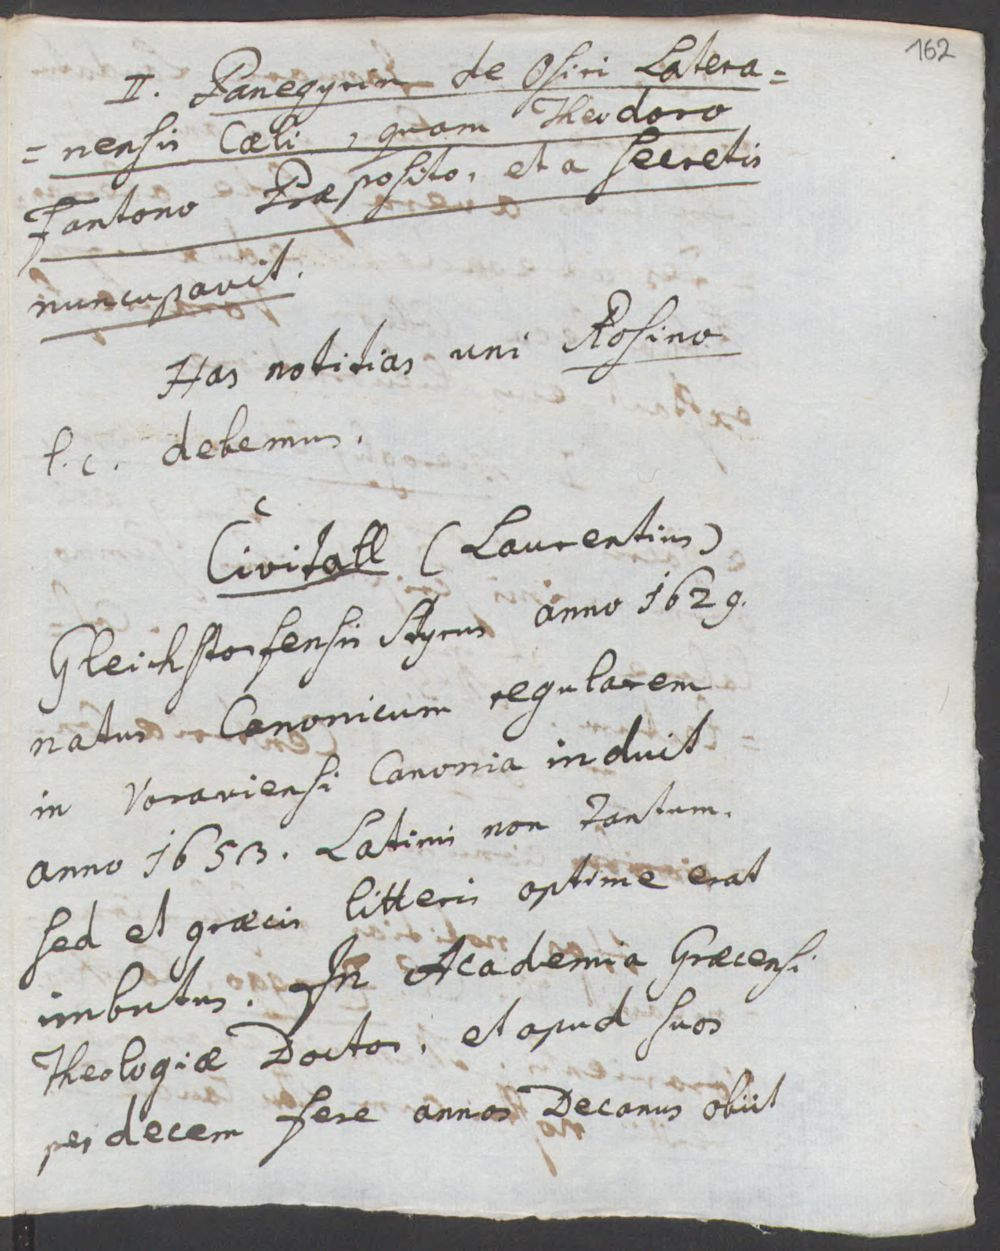 162
II. Panegyrim de Osiri Latera=
=nensis Cæli, quam Theodoro
Fantono Præposito, et a Secretis
nuncupavit.
Has notitias uni Rosino
l. c. debemus.
Civitall (Laurentius)
Gleichstorfensis Styrus anno 1629.
natus Canonicum regularem
in Voraviensi Canonia induit
anno 1653. Latinis non tantum.
sed et græcis litteris optime erat
imbutus. In Academia Græcensi
Theologiæ Doctor, et apud suos
per decem fere annos Decanus obiit